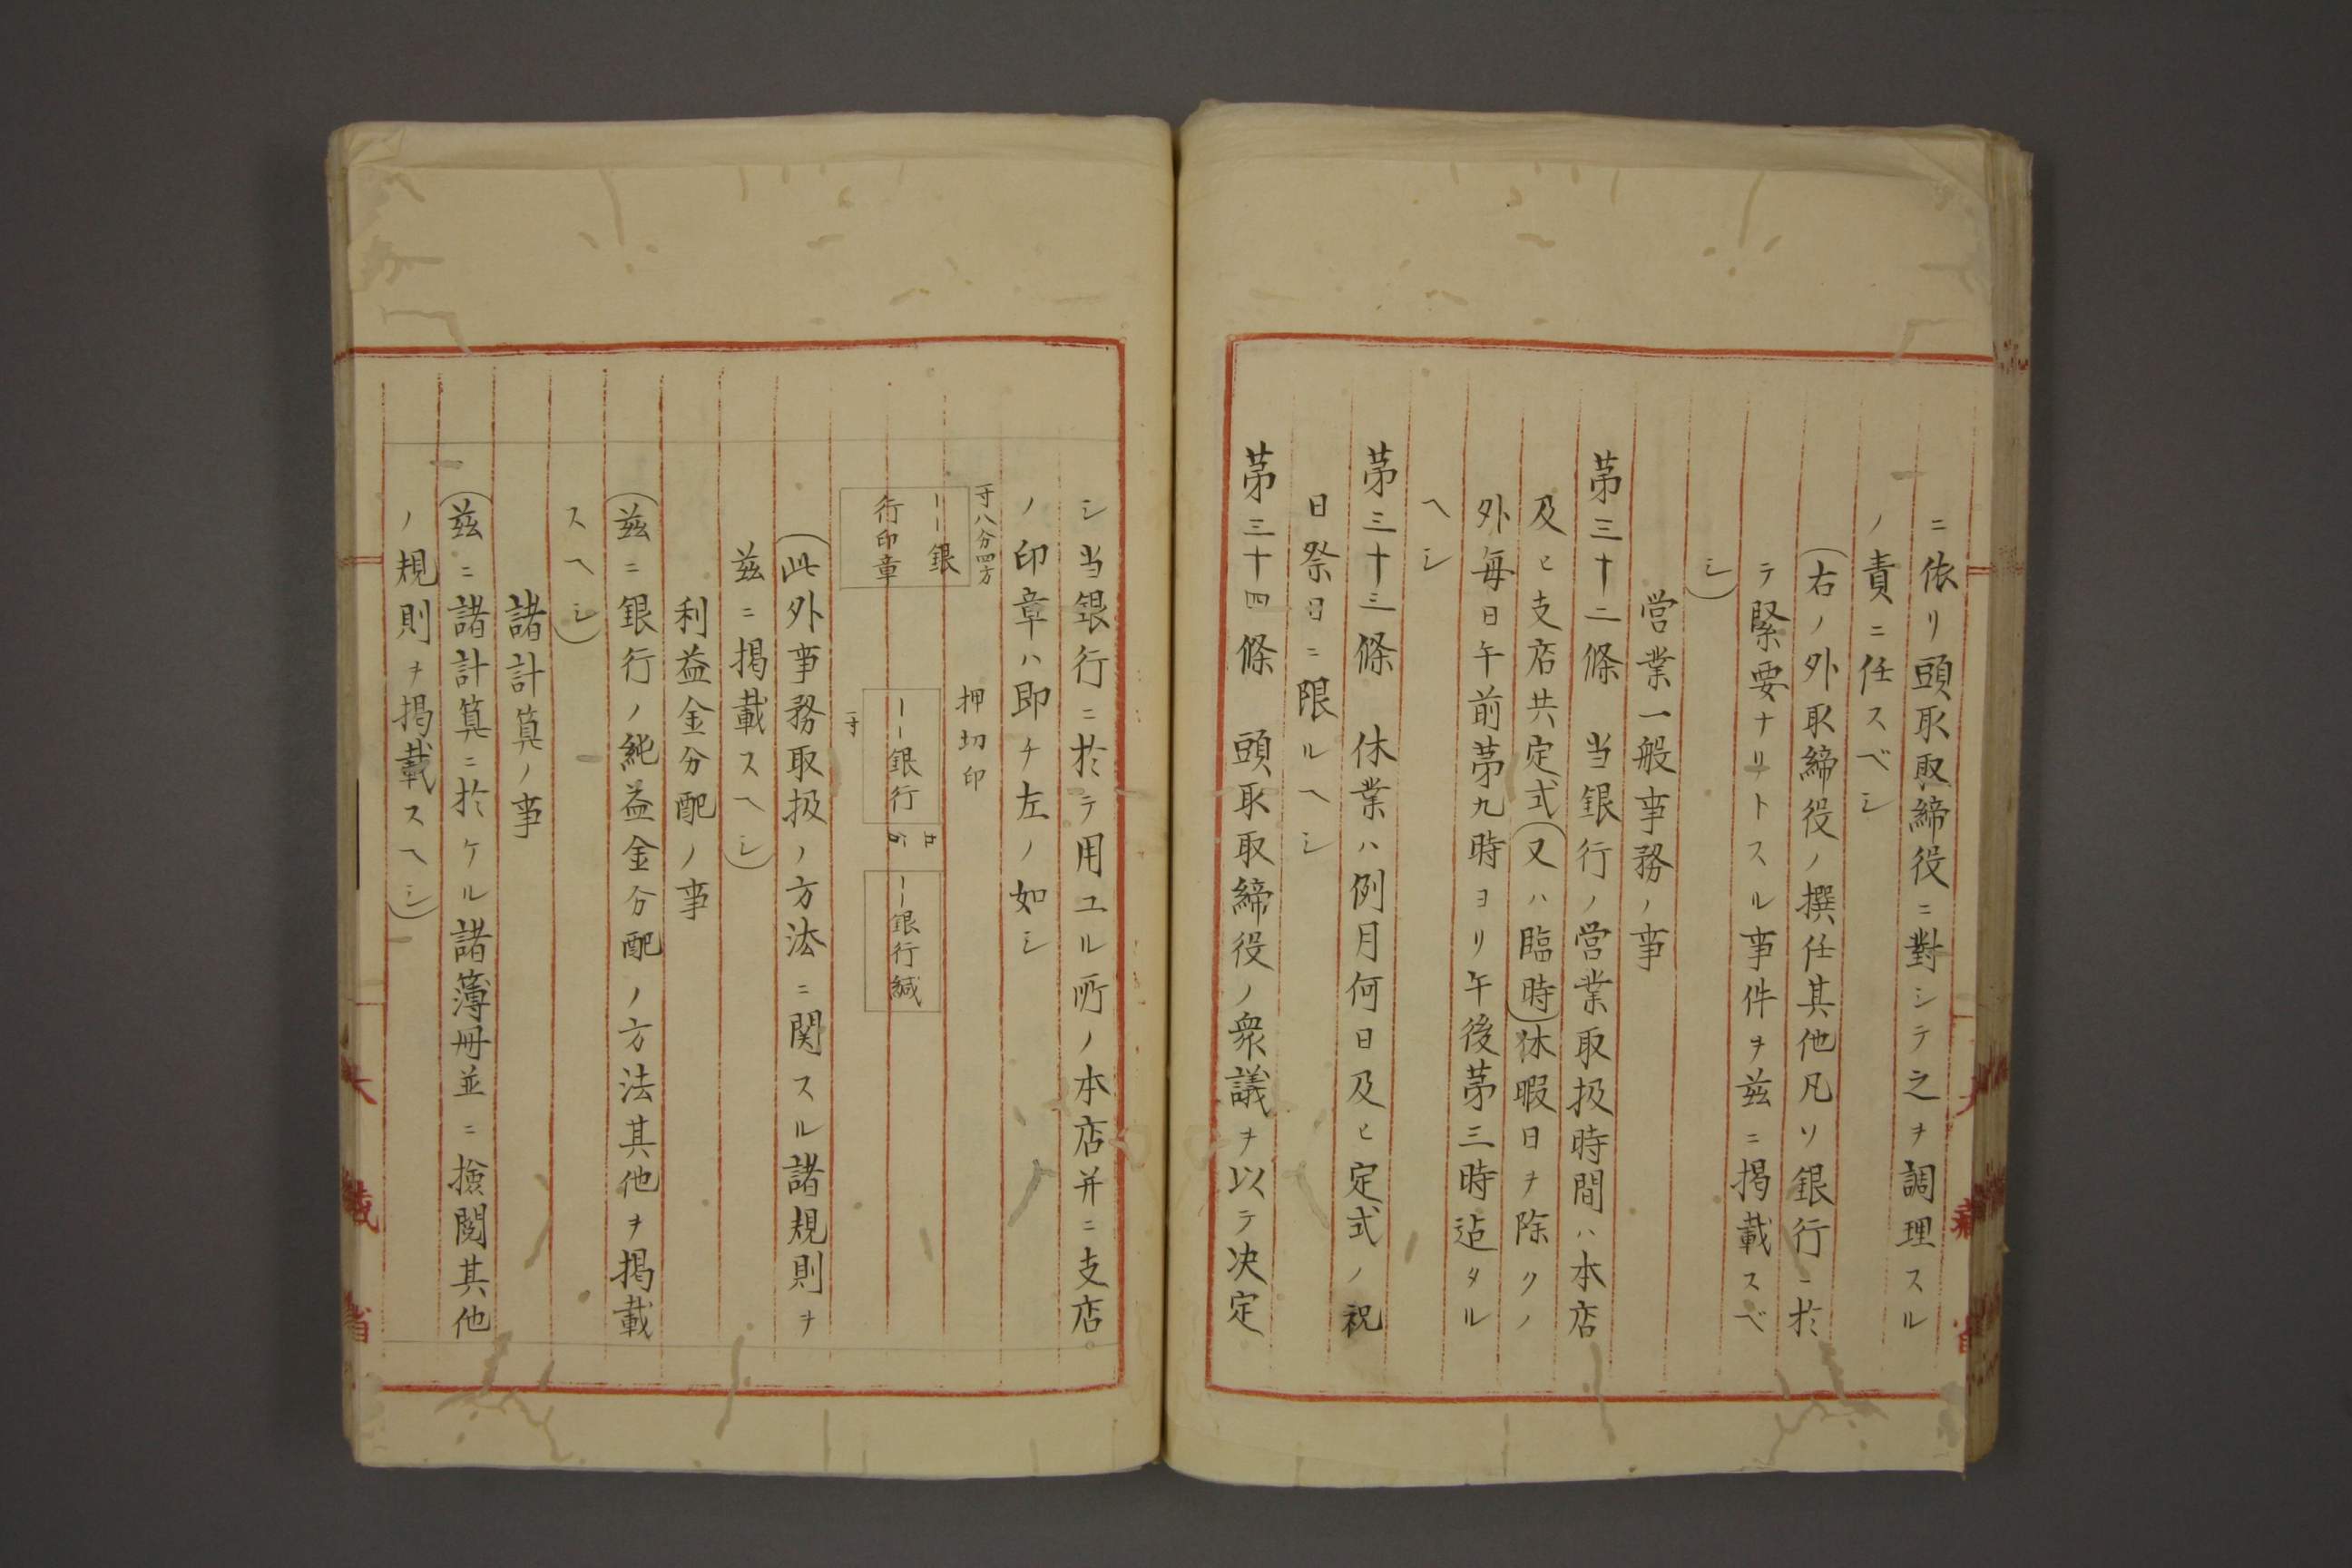 ニ依リ頭取取締役ニ對シテ之ヲ調理スル
ノ責ニ任スベシ
(右ノ外取締役ノ撰任其他凡ソ銀行ニ於
テ緊要ナリトスル事件ヲ茲ニ掲載スベ
シ)
営業一般事務ノ事
苐三十二條 当銀行ノ営業取扱時間ハ本店
及ヒ支店共定式(又ハ臨時)休暇日ヲ除クノ
外毎日午前苐九時ヨリ午後苐三時迠タル
ヘシ
苐三十三條 休業ハ例月何日及ヒ定式ノ祝
日祭日ニ限ルヘシ
苐三十四條 頭取取締役ノ衆議ヲ以テ决定
シ当銀行ニ於テ用ユル所ノ本店并ニ支店
ノ印章ハ即チ左ノ如シ
一寸八分四方
ーー銀
行印章
押切印
ーー銀行
一寸
ーー銀行緘
(此外事務取扱ノ方法ニ関スル諸規則ヲ
茲ニ掲載スヘシ)
利益金分配ノ事
(茲ニ銀行ノ純益金分配ノ方法其他ヲ掲載
スヘシ)
諸計算ノ事
(茲ニ諸計算ニ於ケル諸簿冊並ニ撿閲其他
ノ規則ヲ掲載スヘシ)
大藏省
大藏省